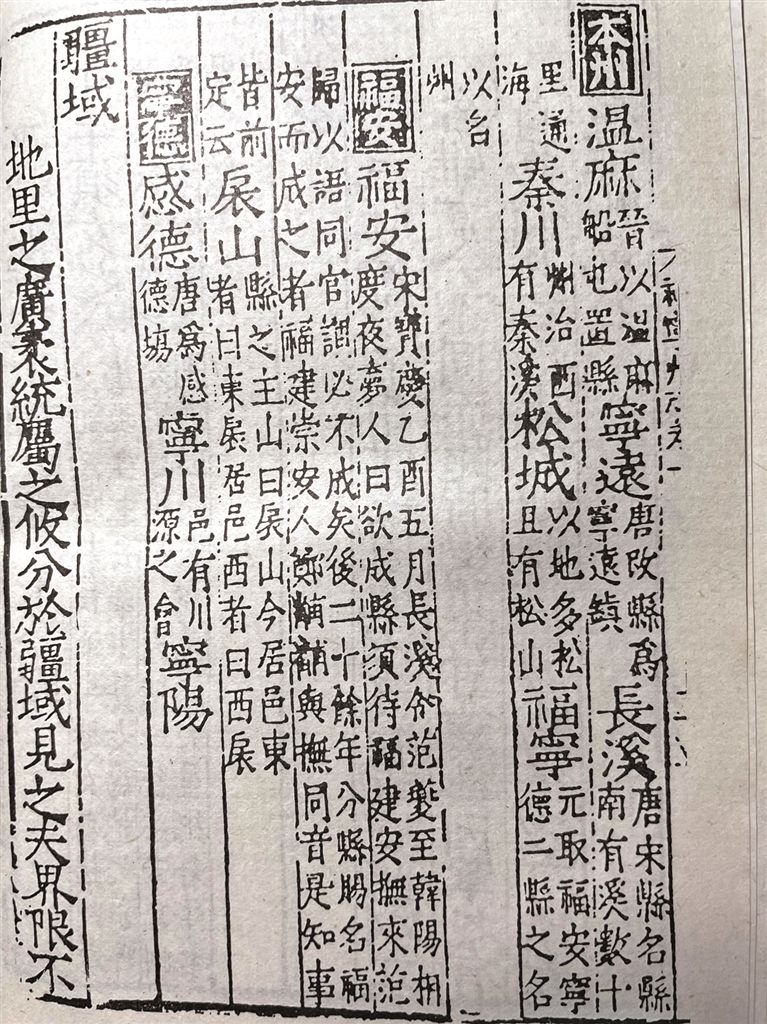 本州 温麻 晉以温麻船屯置縣 寧遠 唐改縣爲寧遠鎮 長溪 唐宋縣名縣南有溪數十
里通海 秦川 州治西有秦溪 松城 以地多松且有松山 福寧 元取福安寧德二縣之名
以名州
福安 福安 宋寶慶乙酉五月長溪令范夔至韓陽相度夜夢人曰欲成縣須待福建安撫來范
歸以語同官謂必不成矣後二十餘年分縣賜名福安而成之者福建崇安人鄭黼黼與撫同音是知事
皆前定云 扆山 縣之主山曰扆山今居邑東者曰東扆居邑西者曰西扆
寧德 感德 唐爲感德場 寧川 邑有川源之會 寧陽
疆域
地里之廣袤統屬之攸分於疆域見之夫界限不